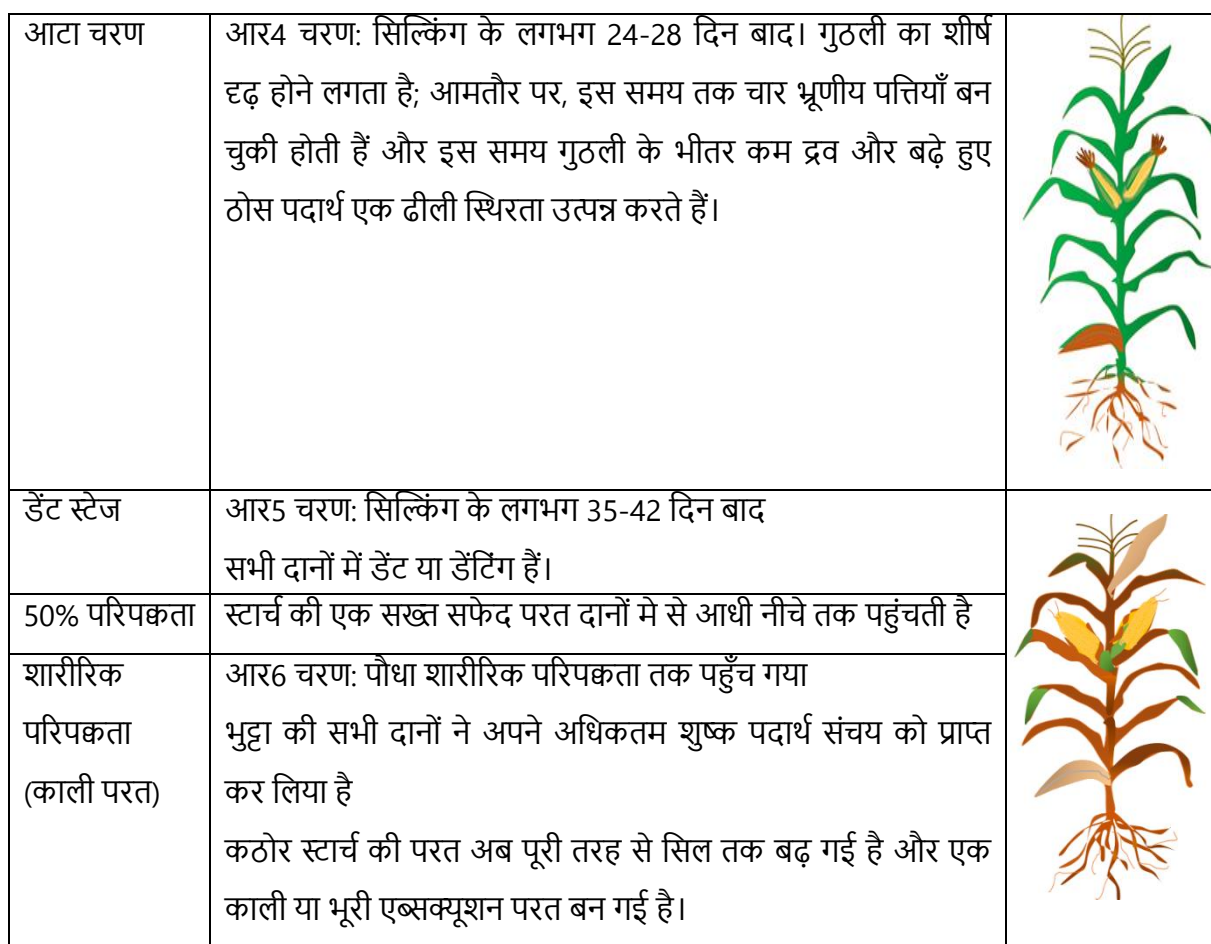 आटा चरण
आर4 चरण: सिल्किंग के लगभग 24-28 दिन बाद। गुठली का शीर्ष
दृढ़ होने लगता है; आमतौर पर, इस समय तक चार भ्रूणीय पत्तियाँ बन
चुकी होती हैं और इस समय गुठली के भीतर कम द्रव और बढ़े हुए
ठोस पदार्थ एक ढीली स्थिरता उत्पन्न करते हैं।
डेंट स्टेज
आर5 चरण: सिल्किंग के लगभग 35-42 दिन बाद
सभी दानों में डेंट या डेंटिंग हैं।
50% परिपक्वता
स्टार्च की एक सख्त सफेद परत दानों मे से आधी नीचे तक पहुंचती है
शारीरिक
परिपक्वता
(काली परत)
आर6 चरण: पौधा शारीरिक परिपक्वता तक पहुँच गया
भुट्टा की सभी दानों ने अपने अधिकतम शुष्क पदार्थ संचय को प्राप्त
कर लिया है
कठोर स्टार्च की परत अब पूरी तरह से सिल तक बढ़ गई है और एक
काली या भूरी एब्सक्यूशन परत बन गई है।